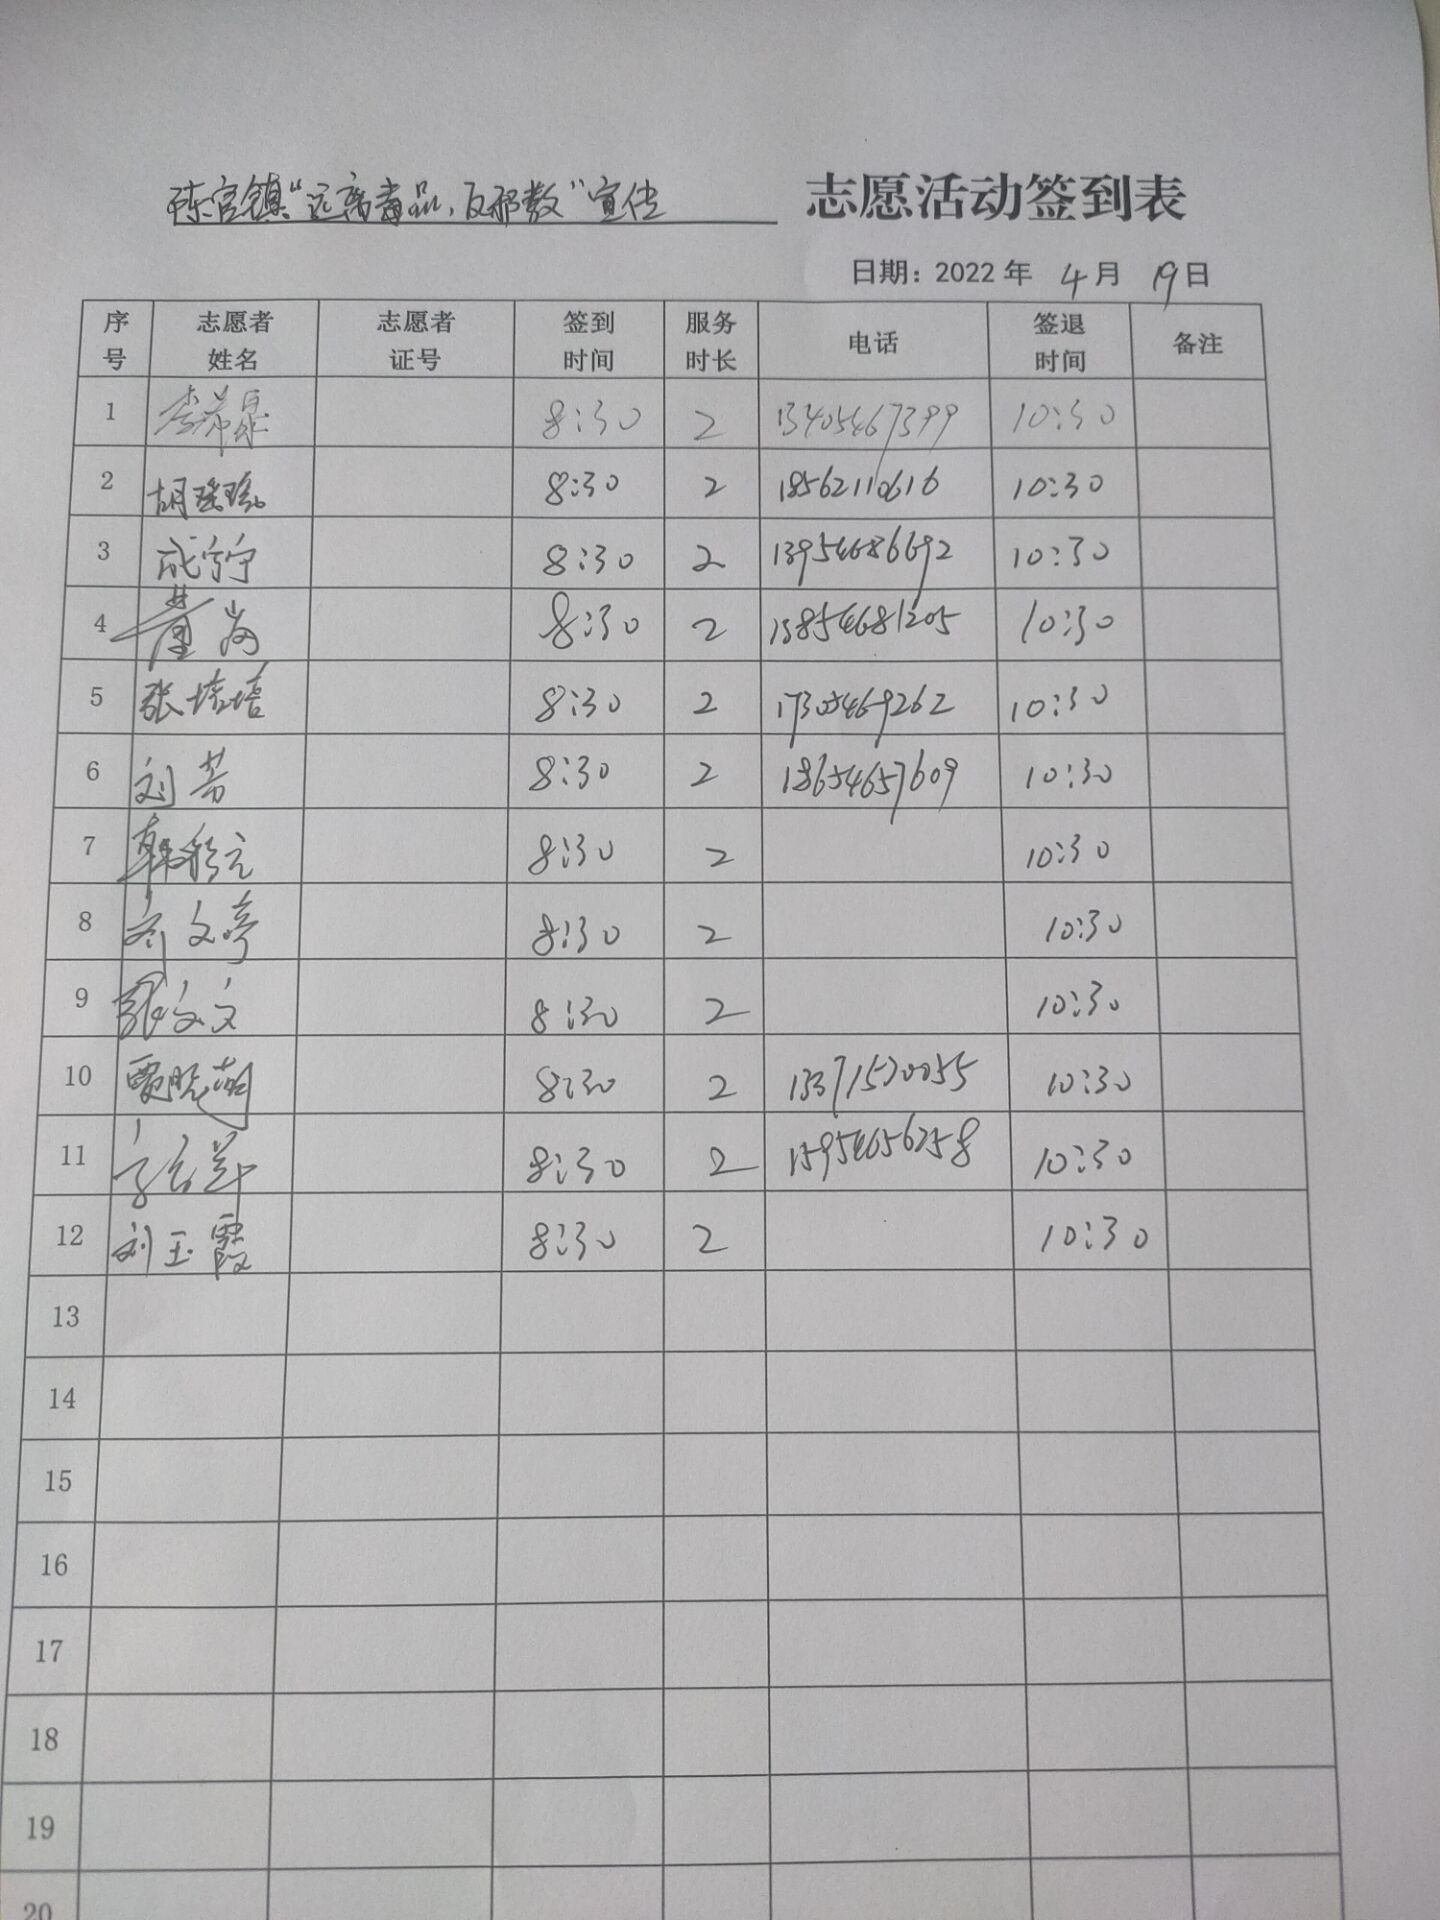 陈官镇“远离毒品、反邪教”宣传 志愿活动签到表
日期：2022年 4月 19日
序号 志愿者姓名 志愿者证号 签到时间 服务时长 电话 签退时间 备注
1 李希泉 8:30 2 13405467399 10:30
2 胡瑶瑶 8:30 2 18562110616 10:30
3 成宁宁 8:30 2 13954686692 10:30
4 董岗 8:30 2 13854681205 10:30
5 张培培 8:30 2 17305469262 10:30
6 刘芳 8:30 2 18654657609 10:30
7 8:30 2 10:30
8 文亭 8:30 2 10:30
9 张文文 8:30 2 10:30
10 贾晓萌 8:30 2 13371520055 10:30
11 8:30 2 15954656258 10:30
12 刘玉霞 8:30 2 10:30
13
14
15
16
17
18
19
20